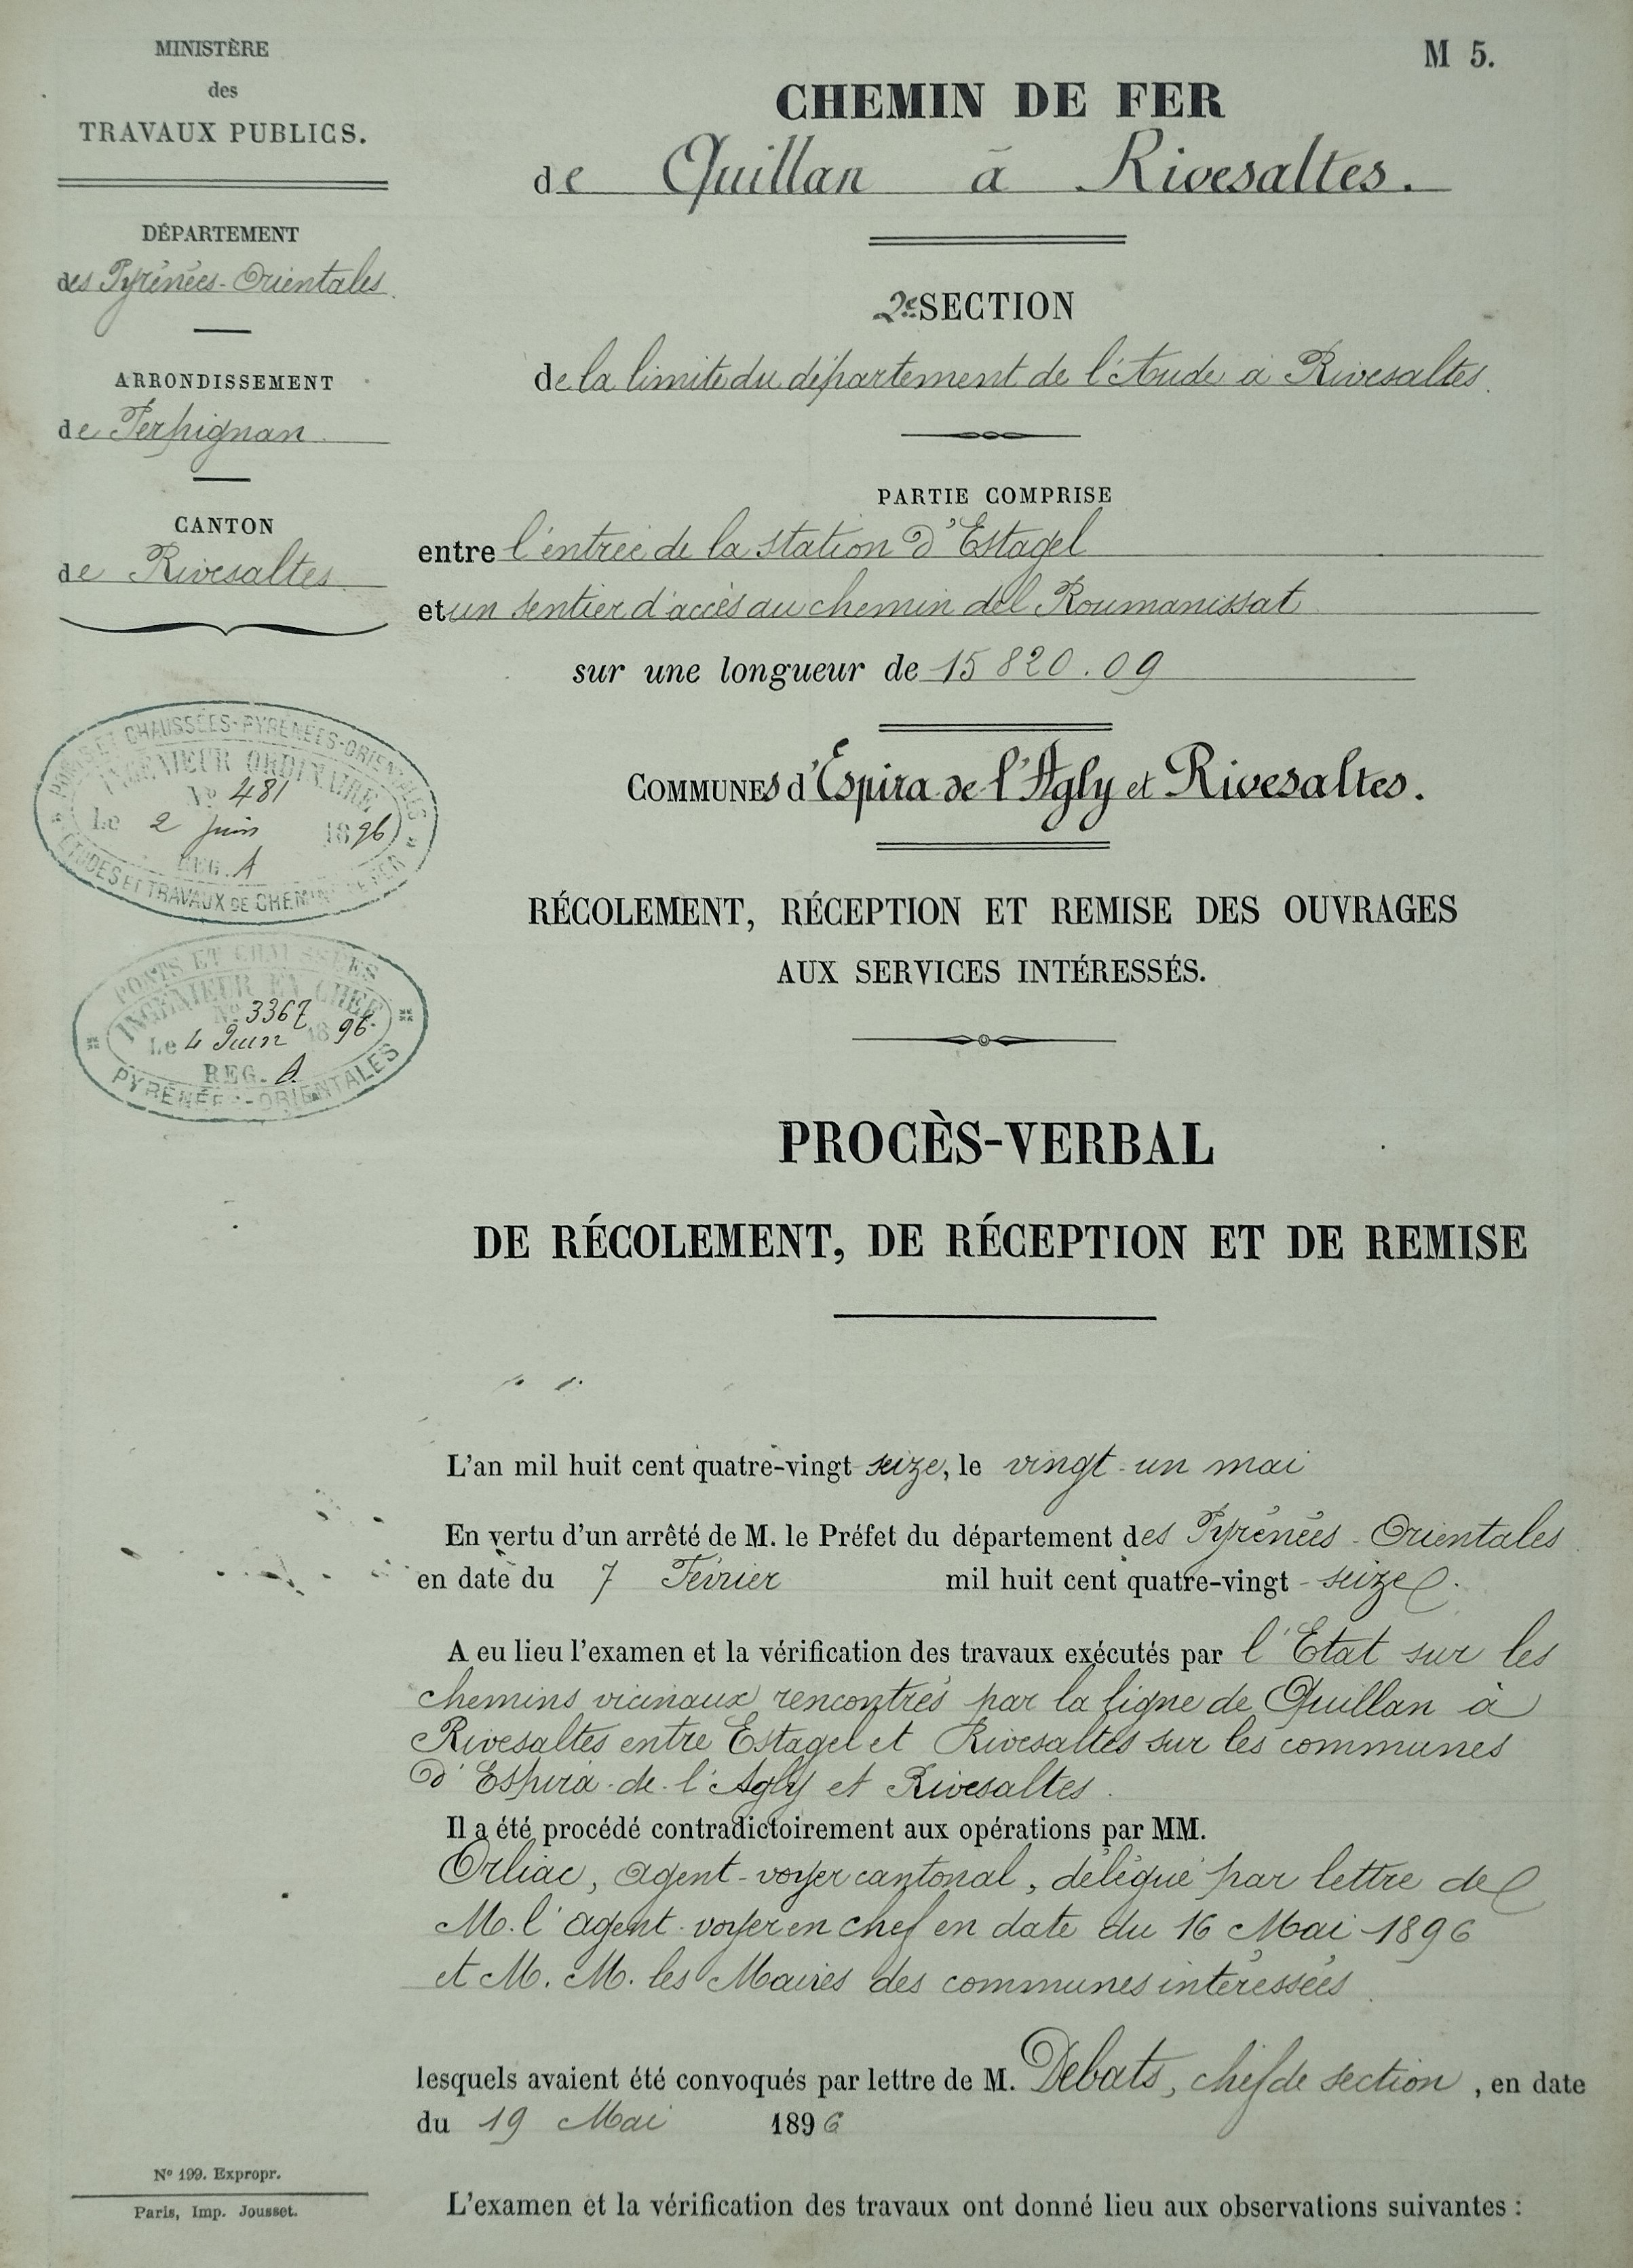 MINISTÈRE
des
TRAVAUX PUBLICS.
DÉPARTEMENT
des Pyrénées-Orientales.
ARRONDISSEMENT
de Perpignan
CANTON
de Rivesaltes
PONTS ET CHAUSSÉES-PYRÉNÉES-ORIENTALES
INGÉNIEUR ORDINAIRE
No 481
Le 2 Juin 1896
REG. A
ETUDES ET TRAVAUX DE CHEMINS DE FER
PONTS ET CHAUSSÉES
INGÉNIEUR EN CHEF
No 3367
Le 4 Juin 1896.
REG. A.
PYRÉNÉES-ORIENTALES
M 5.
CHEMIN DE FER
de Quillan à Rivesaltes.
2e SECTION
de la limite du département de l'Aude à Rivesaltes.
PARTIE COMPRISE
entre l'entrée de la station d'Estagel
et un sentier d'accès au chemin del Roumanissat
sur une longueur de 15820.09
COMMUNES d'Espira-de-l'Agly et Rivesaltes.
RÉCOLEMENT, RÉCEPTION ET REMISE DES OUVRAGES
AUX SERVICES INTÉRESSÉS.
PROCÈS-VERBAL
DE RÉCOLEMENT, DE RÉCEPTION ET DE REMISE
L'an mil huit cent quatre-vingt seize, le vingt-un mai
En vertu d'un arrêté de M. le Préfet du département des Pyrénées-Orientales
en date du 7 Février mil huit cent quatre-vingt-seize.
A eu lieu l'examen et la vérification des travaux exécutés par l'Etat sur les
chemins vicinaux rencontrés par la ligne de Quillan à
Rivesaltes entre Estagel et Rivesaltes sur les communes
d'Espira-de-l'Agly et Rivesaltes.
Il a été procédé contradictoirement aux opérations par MM.
Orliac, agent-voyer cantonal, délégué par lettre de
M. l'agent-voyer en chef en date du 16 Mai 1896
et M. M. les Maires des communes intéressées
lesquels avaient été convoqués par lettre de M. Debats, chef de section, en date
du 19 Mai 1896
L'examen et la vérification des travaux ont donné lieu aux observations suivantes :
No 199. Expropr.
Paris, Imp. Jousset.